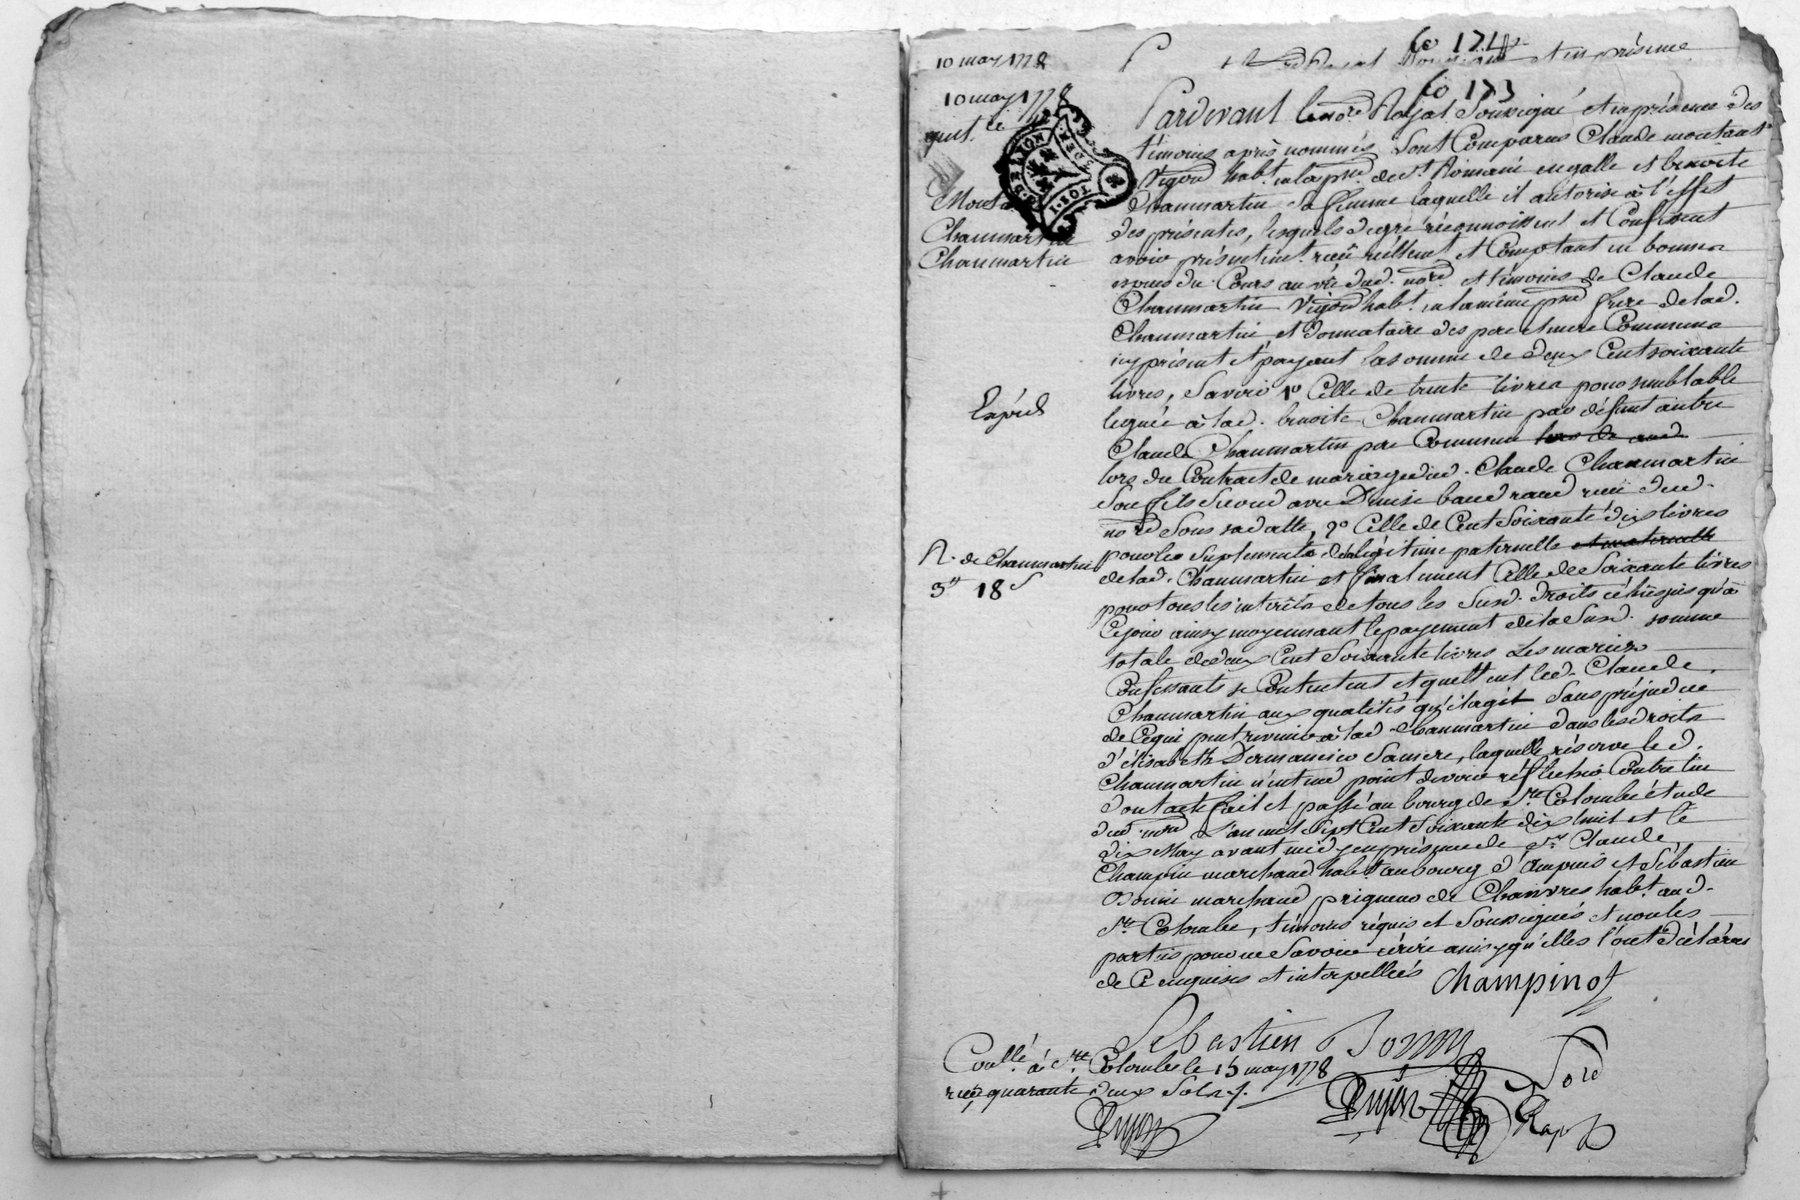 10 may 1778
Co 174
et en présence
10 may 1778
quit.ce
Montant
Chaumartin
Chaumartin
Expéd
R. de Chaumartin
3# 18s
Co 173
Pardevant le no.re Royal Soussigné et en présence des
témoins après nommés, Sont Comparus Claude montant
Vigon habt. en la psse. de St. Romain en galle et benoite
Chaumartin sa femme laquelle il autorise à l'effet
des présentes, lesquels de gré réconnoissent et Confessent
avoir présentemt. reçu réllemt. et Comptant en bonnes
espèces du Cours au vu dud. nore. et témoins de Claude
Chaumartin Vigon habt. en la même psse frere de lad.
Chaumartin et donnataire des pere et mere Communs
icy présent et payant la somme de deux Cent soixante
livres, Savoir 1o Celle de trente livres pour semblable
leguée à lad. benoite Chaumartin par défunt autre
Claude Chaumartin pere Commun
lors du Contract de mariage dud. Claude Chaumartin
Son fils Second avec Denise baudrand reçu dud.
nore Sous sa datte, 2o Celle de Cent Soixante dix livres
pour les Suplements de légitime paternelle et maternelle
de lad. Chaumartin et finalement Celle de Soixante livres
pour tous les intérêts de tous les Susd. droits échus jusqu'à
Ce jour ainsy moyennant le payement de la Susd. somme
totale de deux Cent Soixante livres Les mariés
Confessants se Contentent et quittent led. Claude
Chaumartin aux qualités qu'il agit Sans préjudice
de Ce qui peut revenir à lad. Chaumartin dans les droits
d'élisabeth Dermancieu Sa mere, laquelle réserve led.
Chaumartin n'entend point devoir réfléchir Contre lui
dont acte fait et passé au bourg de Ste Colombe étude
dud. nore L'an mil Sept Cent Soixante dix huit et le
dix May avant midy en présence de Sr. Claude
Champin marchand habt. au bourg d'Ampuis et Sébastien
Bonni marchand peigneur de Chanvres habt. aud.
Ste Colombe, témoins réquis et Soussignés et non les
parties pour ne Savoir écrire ainsy qu'elles l'ont déclaré
de Ce enquises et interpellées Champinof
Sebastien Bonny
Coullé. à Ste. Colombe le 15 may 1778
reçu quarante deux Sols.